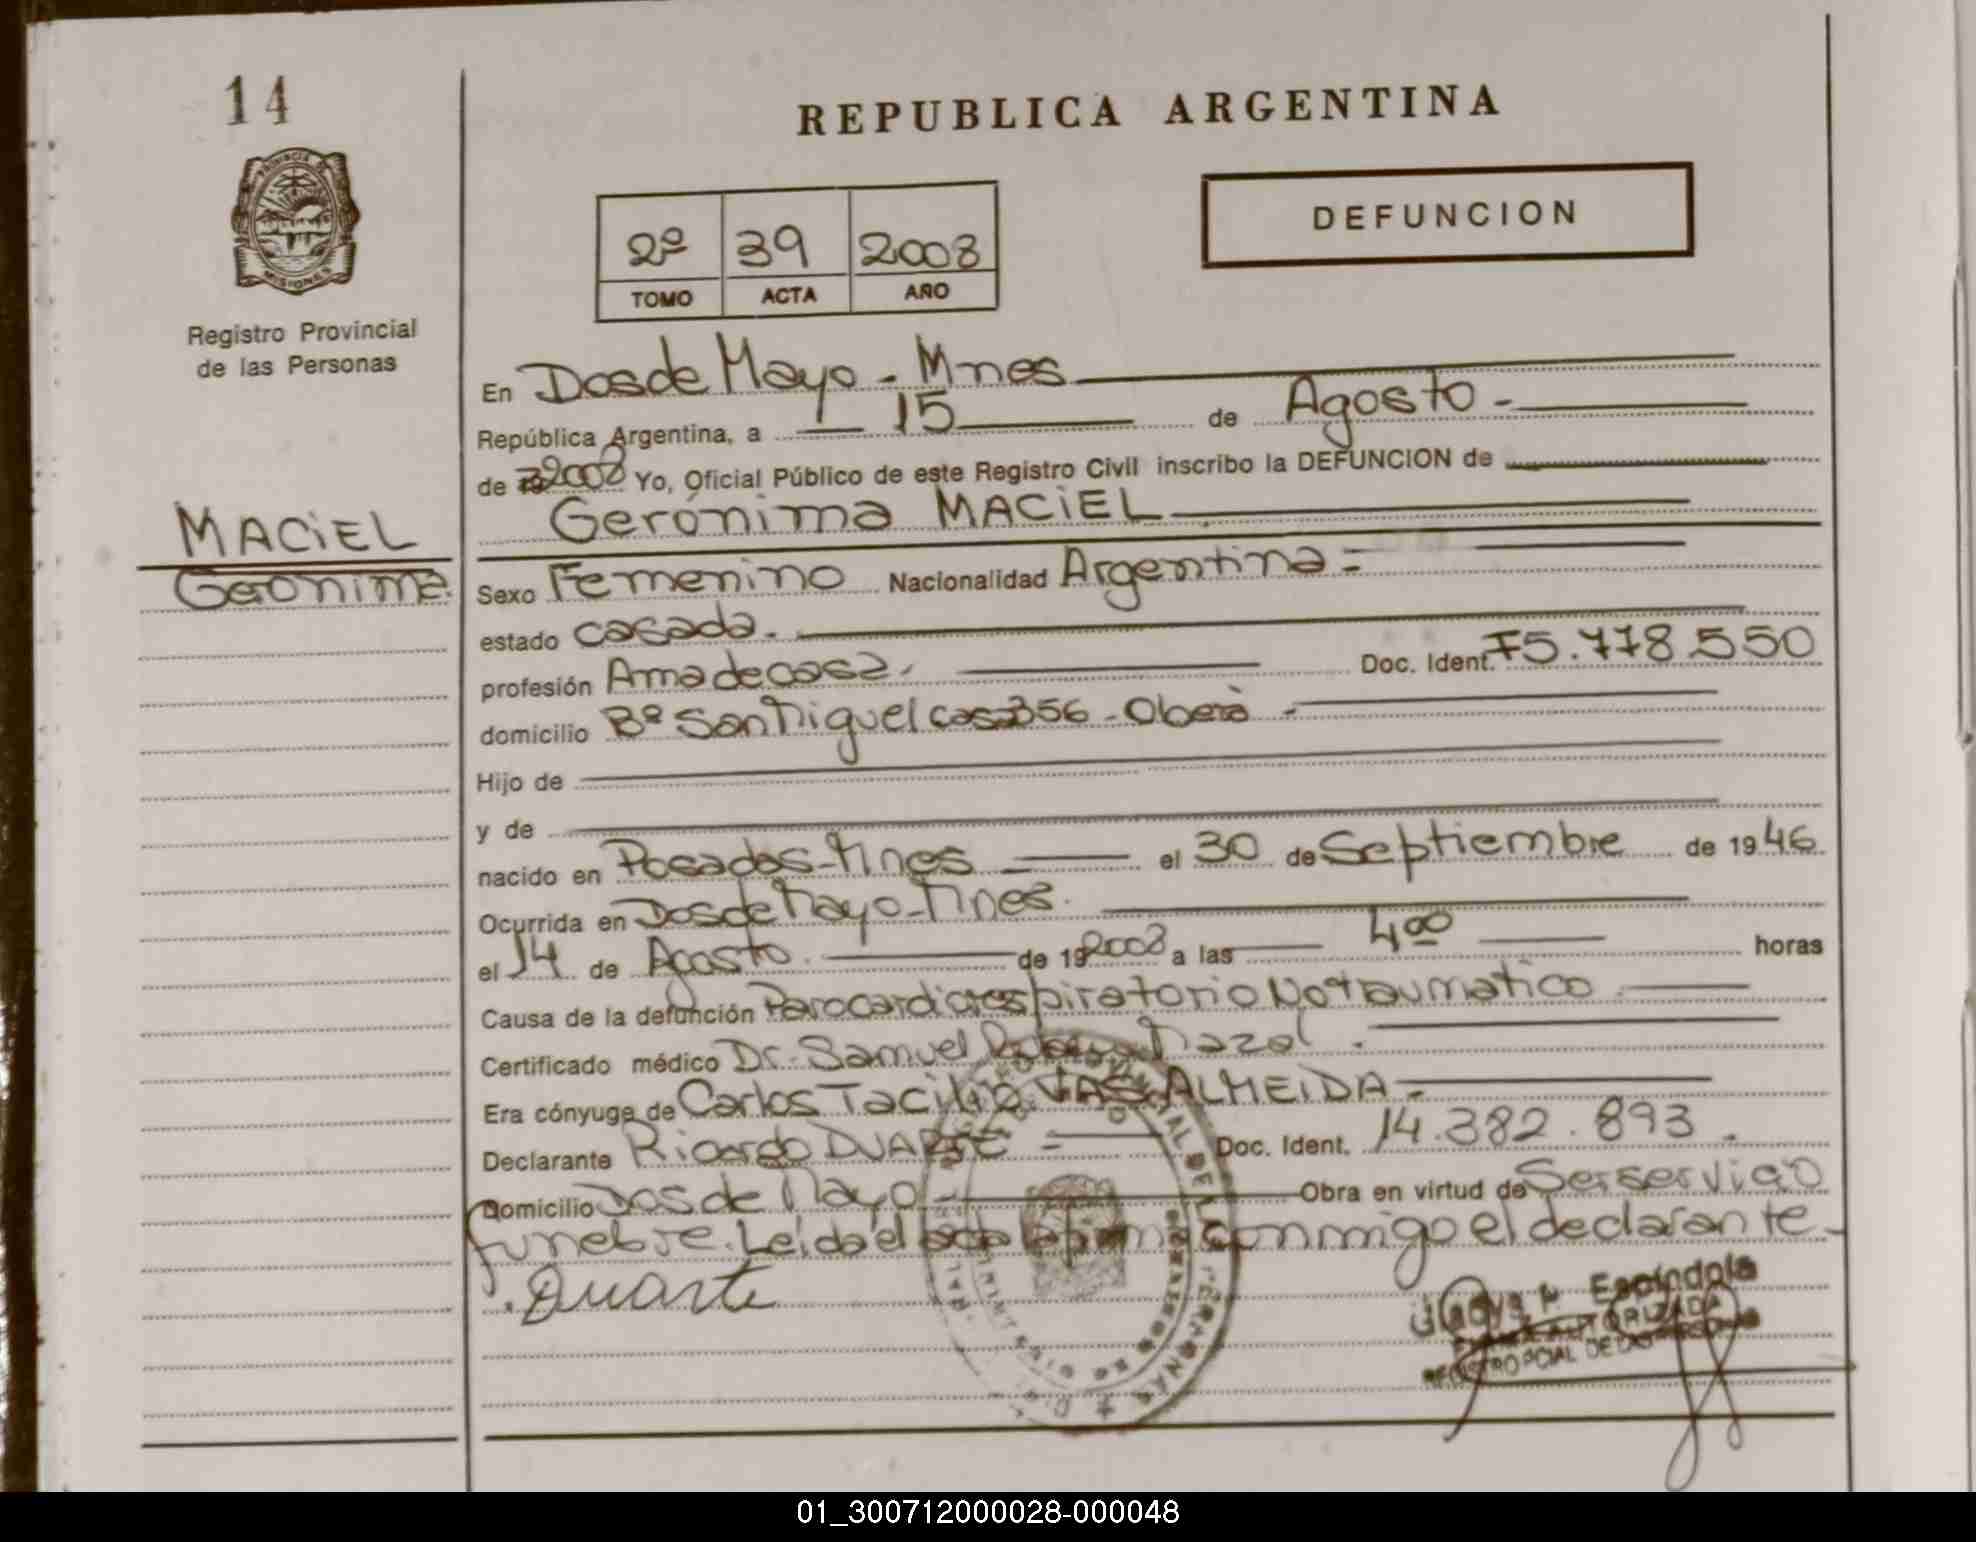 14
REPUBLICA ARGENTINA
PROVINCIA DE
MISIONES
Registro Provincial
de las Personas
DEFUNCION
2º 39 2008
TOMO ACTA AÑO
En Dos de Mayo - Mnes
República Argentina, a 15 de Agosto -
de 2008 Yo, Oficial Público de este Registro Civil inscribo la DEFUNCION de
Gerónima MACiEL
MACiEL
Gerónima.
Sexo Femenino Nacionalidad Argentina =
estado casada.
profesión Ama de casa. Doc. Ident. F5.778.550
domicilio Bº San Miguel casa 356 - Oberà -
Hijo de
y de
nacido en Posadas - Mnes el 30 de Septiembre de 1946
Ocurrida en Dos de Mayo - Mnes.
el 14 de Agosto. de 192008 a las 4 00 horas
Causa de la defunción Parocardiorespiratorio No traumatico
Certificado médico Dr. Samuel Mazal.
Era cónyuge de Carlos Tacilio VAS ALMEiDA -
Declarante Ricardo DUARTE = Doc. Ident. 14.382.893.
Domicilio Dos de Mayo - Obra en virtud de Ser servicio
funebre. Leida el acta la firma conmigo el declarante -
. Duarte
Espíndola
AUTORIZADA
REGISTRO PCIAL DE LAS
01_300712000028-000048